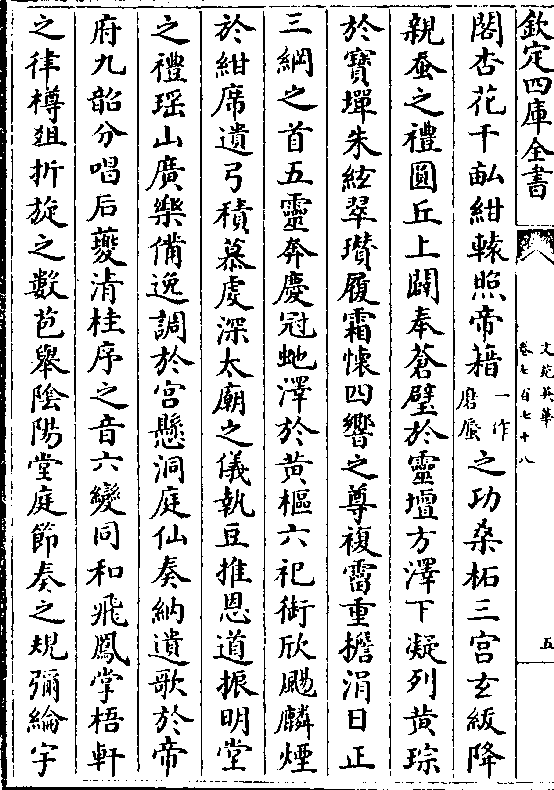 欽定四庫全書
文苑英華
卷七百七十八
五
閣杏花千畝紺轅照帝藉一作磨蜃之功桑柘三宮玄紞降
親蚕之禮圓丘上闢奉蒼璧於靈壇方澤下凝列黄琮
於寳墠朱絃翠瓚履霜懐四響之尊複霤重擔涓日正
三綱之首五靈奔慶冠虵澤於黄樞六祀銜欣颺麟煙
於紺席遺弓積慕虔深太廟之儀執豆推恩道振明堂
之禮瑶山廣樂備逸調於宫懸洞庭仙奏納遺歌於帝
府九韶分唱后夔清桂序之音六變同和飛鳳掌梧軒
之律樽俎折旋之數苞舉陰陽堂庭節奏之規彌綸宇